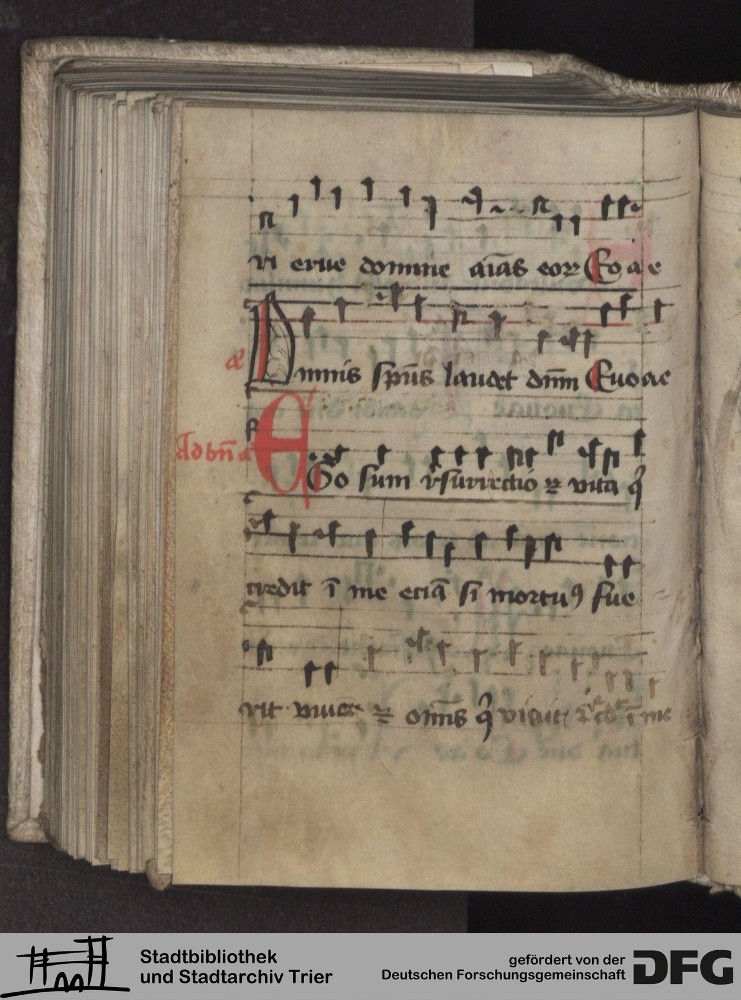 ri erue domine aīas eorꝝ Euoae
a Omnis spūs laudet dn̄m Euoae
Ad bn̄ a EGo sum rsurrectio ⁊ vita q̄
credit ī me eciā si mortuꝯ fue
rit viuet ⁊ omīs q̄ viuit ⁊ c̄d ī me
Stadtbibliothek
und Stadtarchiv Trier
gefördert von der
Deutschen Forschungsgemeinschaft
DFG